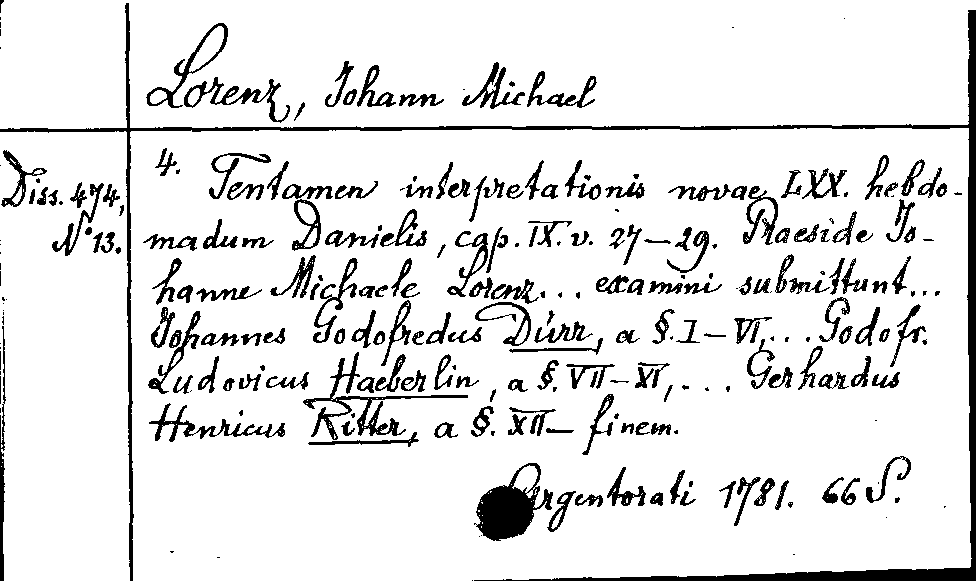 Lorenz, Johann Michael
Diss. 474,
N° 13.
4. Tentamen interpretationis novae LXX. hebdo-
madum Danielis, cap. IX. v. 27-29. Praeside Jo-
hanne Michaele Lorenz... examini submittunt...
Johannes Godofredus Dürr, a §. I-VI,... Godofr.
Ludovicus Haeberlin, a §. VII-XI,... Gerhardus
Henricus Ritter, a §. XII- finem.
Argentorati 1781. 66 S.